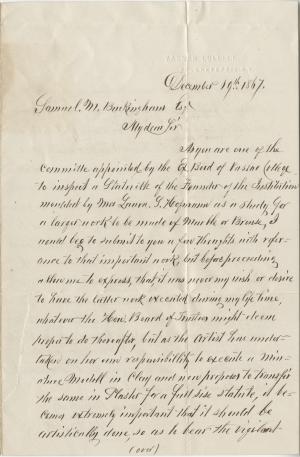 VASSAR COLLEGE
December 19th 1867.
Samuel M. Buckingham Esqr
My dear Sir
As you are one of the
committe appointed by the Ex Bord of Vassar College
to inspect a Statuette of the Founder of the Institution
moulded by Miss Laura S. as a study for
a larger work to be made of Marble or Bronse, I
would beg to submit to you a few thoughts with refer-
ance to that important work, but before preceeding
allow me to express, that it was never my wish or desire
to have the latter work executed during my life time,
whatever the Hon. Board of Trustees might deem
proper to do thereafter, but as the Artist has under-
taken on her own responsibility to execute a Min-
ature Modell in Clay and now proposes to transfer
the same in Plaster for a full size statute, it be-
comes extremely important that it should be
artistically done, so as to bear the vigilant
(over)